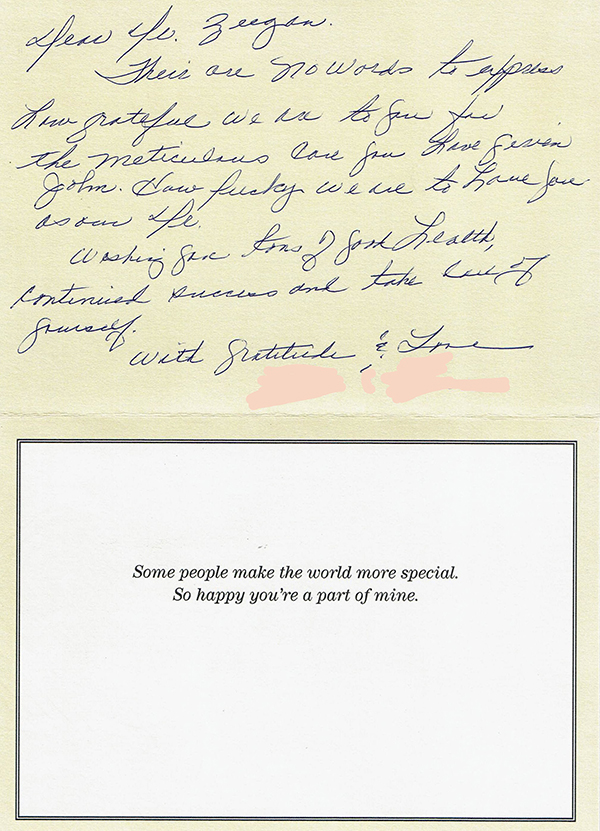 Dear Dr. Zeegan.
Their are no words to express
how grateful we are to you for
the meticulous care you have given
John. How lucky we are to have you
as our Dr.
Wishing you tons of good health,
continued success and take care of
yourself.
With Gratitude & Love
Some people make the world more special.
So happy you're a part of mine.